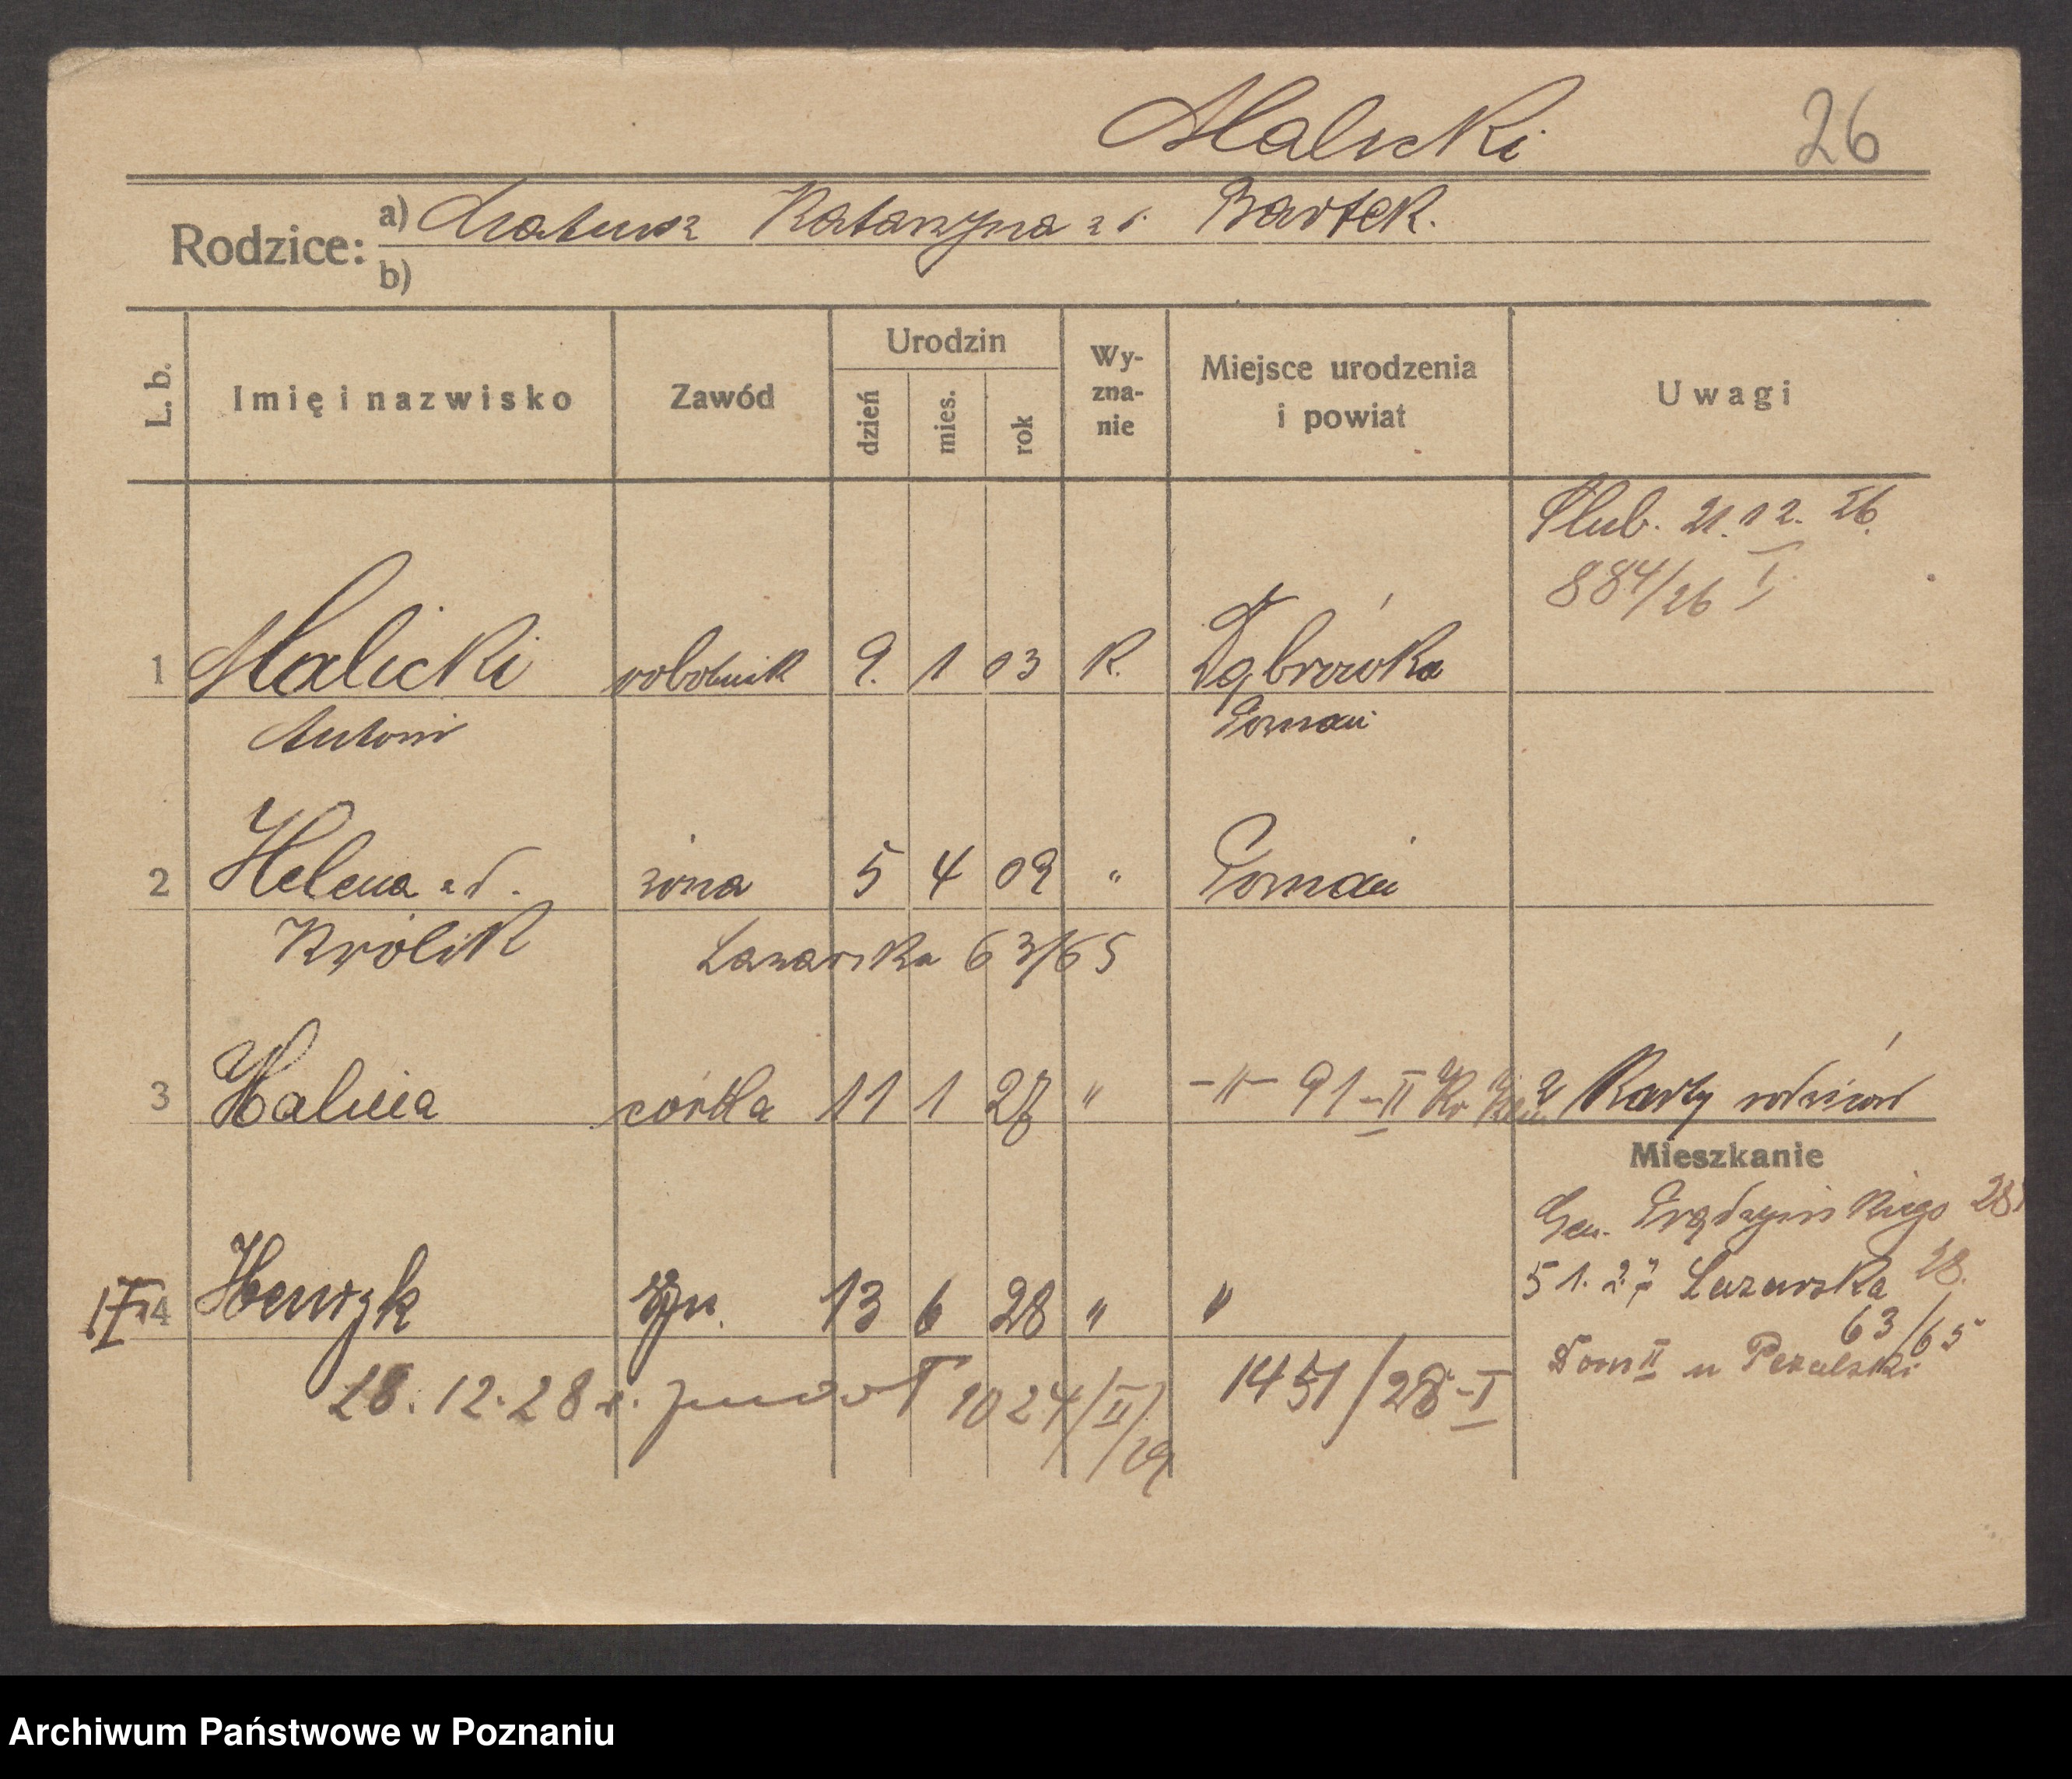 Malicki 26
Rodzice: a) Mateusz Katarzyna z d. Bartek.
b)
L. b. Imię i nazwisko Zawód Urodzin dzień mies. rok Wy-zna-nie Miejsce urodzenia i powiat Uwagi
Ślub. 21.12.26.
884/26 I
1 Malicki robotnik 9. 1 03 K. Dąbrówka
Antoni Poznań
2 Helena z d. żona 5 4 09 " Poznań
Królik Łazarska 63/65
3 Halina córka 11 1 27 " -"- 91-II z Karty rodziców
Mieszkanie
Gen. Prądzyńskiego 28
5 1. 27 Łazarska 28.
63/65
4 Henryk syn. 13 6 28 " "
Dom II u Pezalski
18.12.28 r. 1024/II/29 1451/28-I
Archiwum Państwowe w Poznaniu